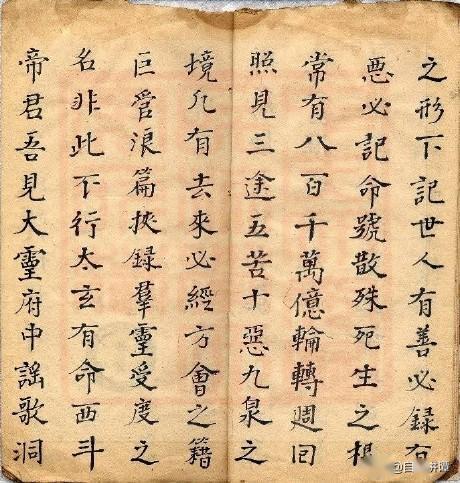 之形下記世人有善必録有
惡必記命號散殊死生之根
常有八百千萬億輪轉週囘
照見三途五苦十惡九泉之
境凢有去來必經方會之籍
巨浪篇挾録羣靈受度之
名非此不行太玄有命西斗
帝君吾見大靈府中謡歌洞